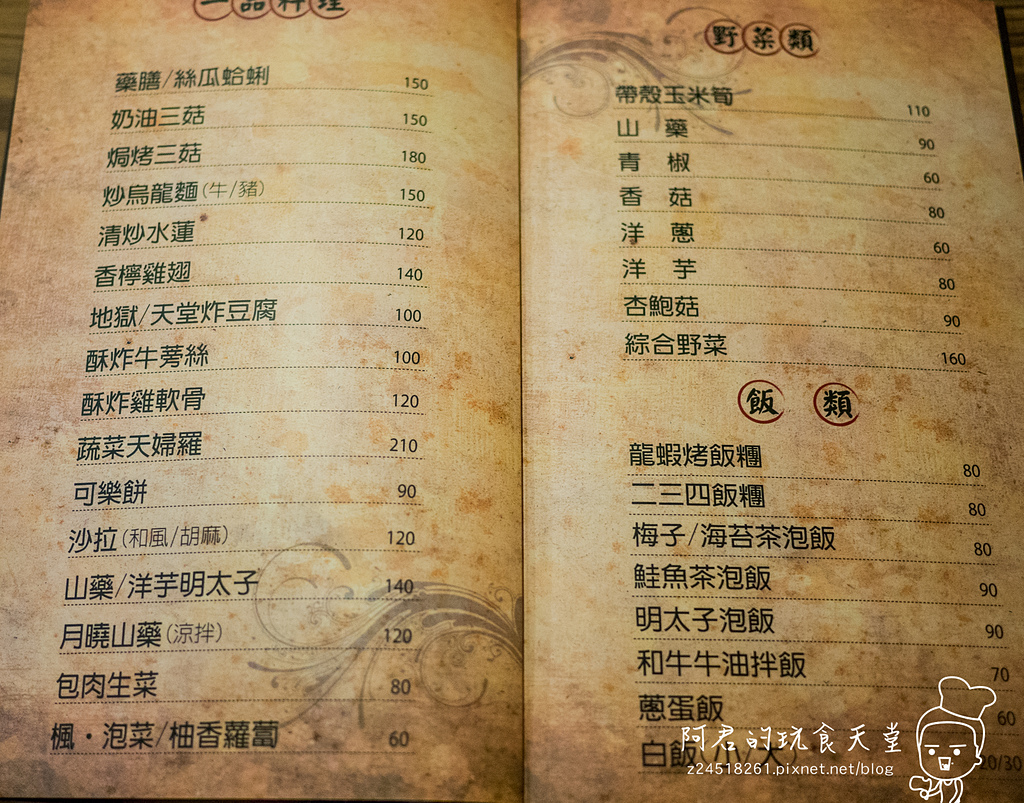 一品料理
藥膳/絲瓜蛤蜊 150
奶油三菇 150
焗烤三菇 180
炒烏龍麵(牛/豬) 150
清炒水蓮 120
香檸雞翅 140
地獄/天堂炸豆腐 100
酥炸牛蒡絲 100
酥炸雞軟骨 120
蔬菜天婦羅 210
可樂餅 90
沙拉(和風/胡麻) 120
山藥/洋芋明太子 140
月曉山藥(涼拌) 120
包肉生菜 80
楓・泡菜/柚香蘿蔔 60
野菜類
帶殼玉米筍 110
山藥 90
青椒 60
香菇 80
洋蔥 60
洋芋 80
杏鮑菇 90
綜合野菜 160
飯類
龍蝦烤飯糰 80
二三四飯糰 80
梅子/海苔茶泡飯 80
鮭魚茶泡飯 90
明太子泡飯 90
和牛牛油拌飯 70
蔥蛋飯 60
白飯 小/大 20/30
阿君的玩食天堂
z24518261.pixnet.net/blog